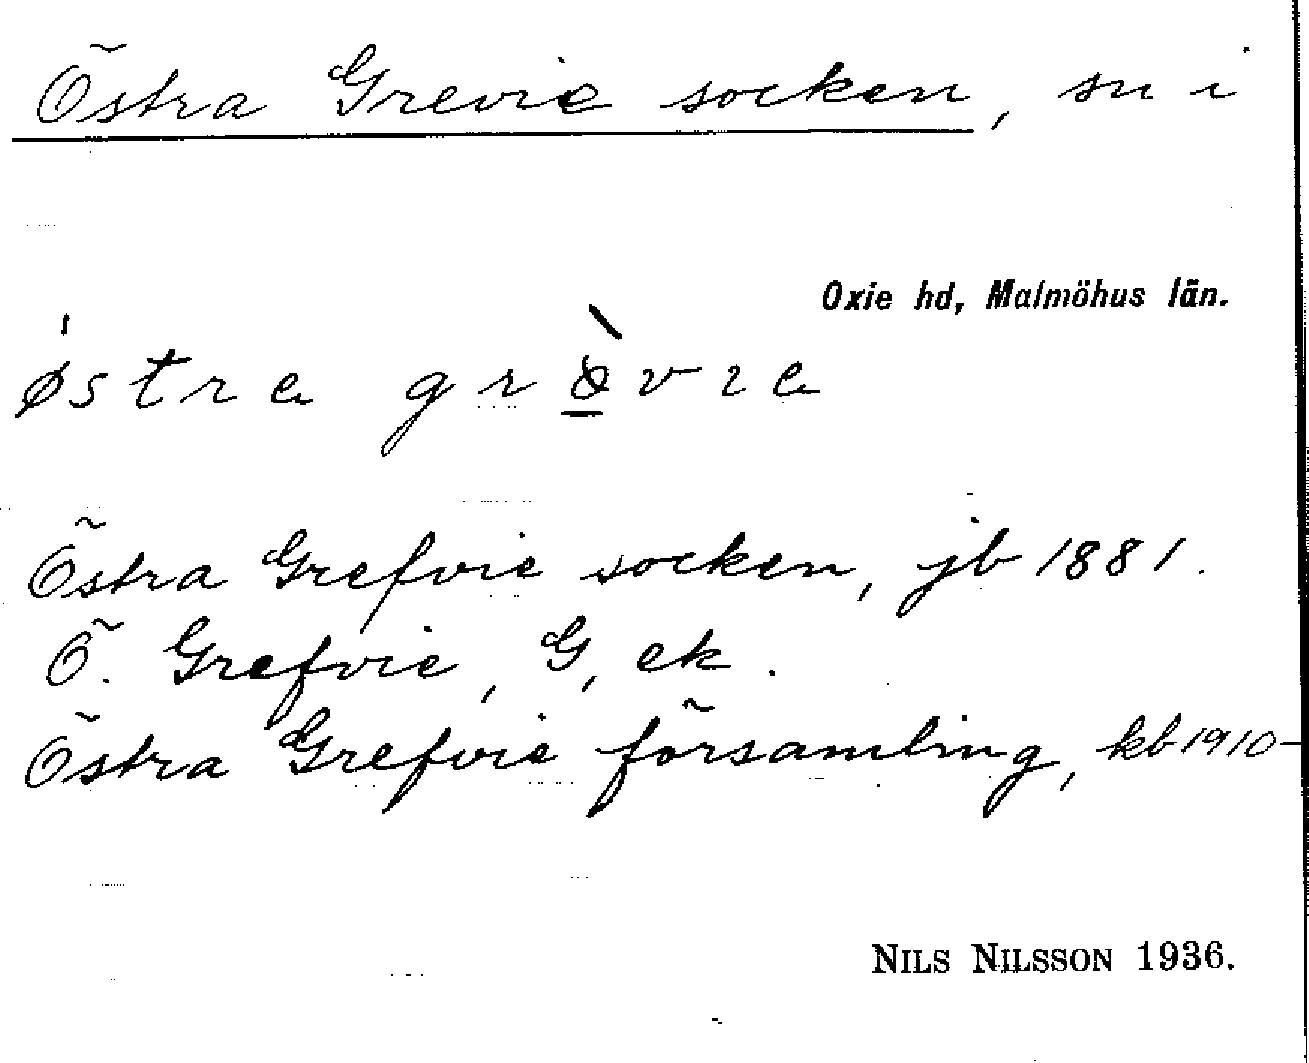 Östra Grevie socken, sn i
Oxie hd, Malmöhus län.
östra grövıa
Östra Grefvie socken, jb 1881.
Ö. Grefvie, G, ek.
Östra Grefvie församling, kb 1910–
NILS NILSSON 1936.